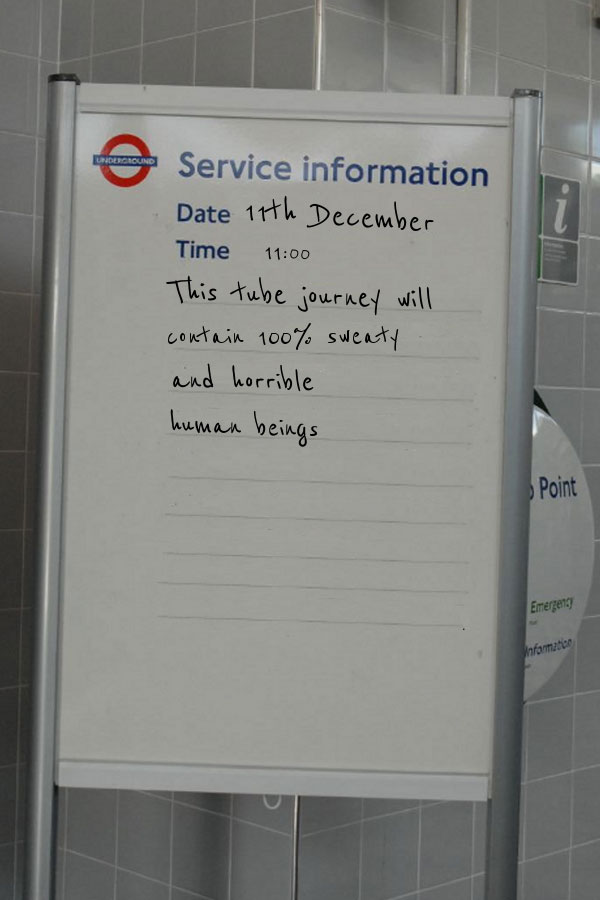 UNDERGROUND
Service information
Date 11th December
Time 11:00
This tube journey will
contain 100% sweaty
and horrible
human beings
i
Point
Emergency
Information